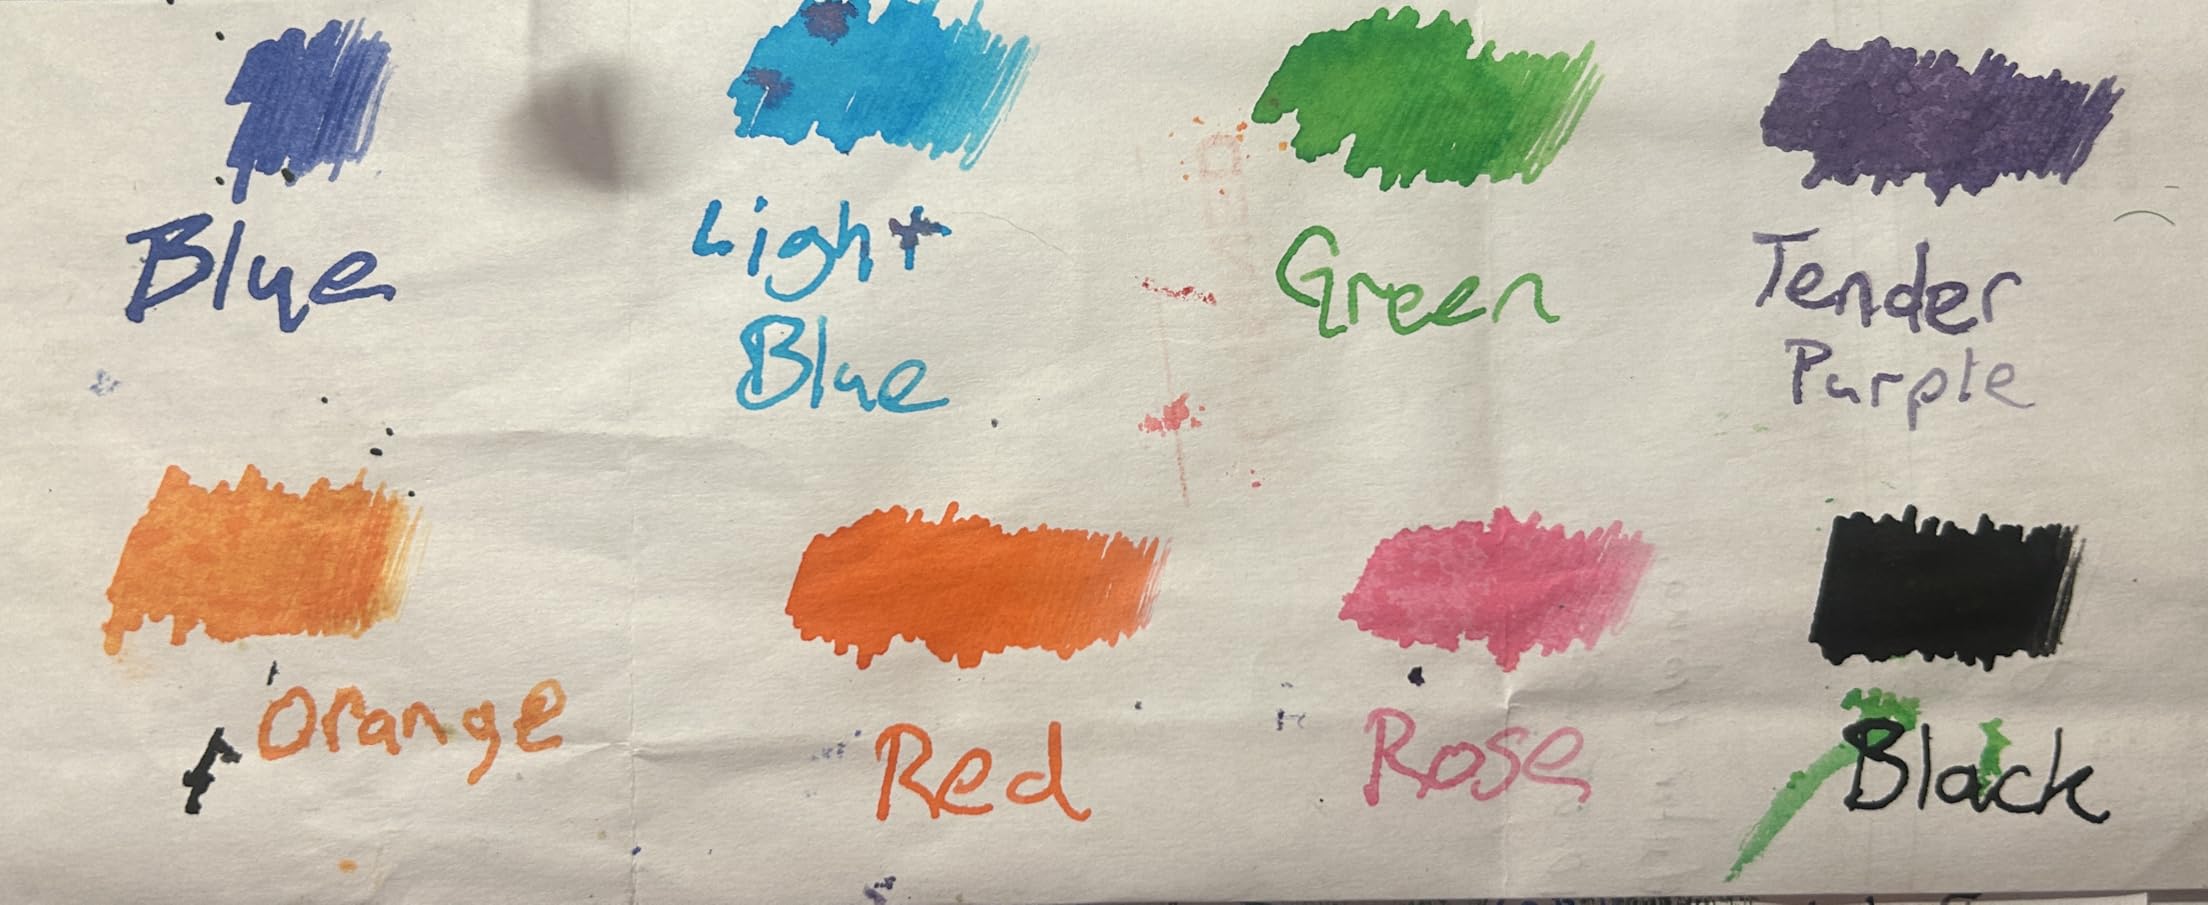 Blue
Light
Blue
Green
Tender
Purple
Orange
Red
Rose
Black